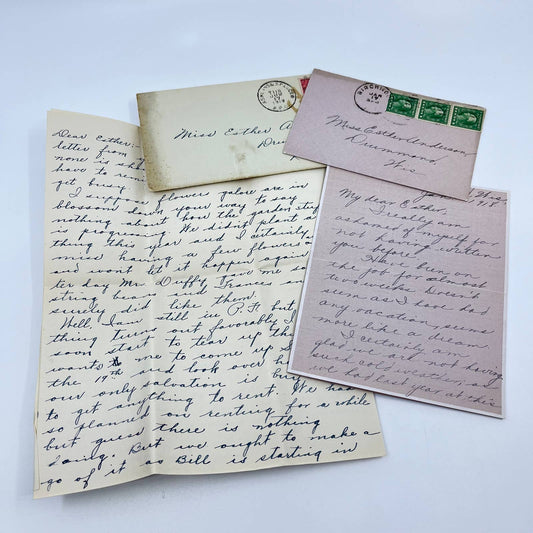 Miss Esther A
Miss Esther Anderson
Drummond
Wis.
JAN
Dear Esther:-
letter from
none is
have to
get busy.
I suppose flowers galore are in
blossom down your way to say
nothing about how the garden stuff
is progressing. We didn't plant a
thing this year and I certainly
miss having a few flowers
and wont let it happen again
ter day Mr. Duffy gave me so
string beans and Frances an
surely did like them.
Well, I am still in P. F. but
thing turns out favorably I
soon start to tear up th
wants me to come up
the 19th and look over h
our only salvation is buy
to get anything to rent. We ha
so planned on renting for a while
but guess there is nothing
doing. But we ought to make a
go of it as Bill is starting in
My dear Esther,
I really am
ashamed of myself for
not having written
you before.
Have been on
the job for almost
two weeks. Doesn't
seem as I have had
any vacation, seems
more like a dream
I certainly am
glad we are not having
such cold weather, as
we had last year at this